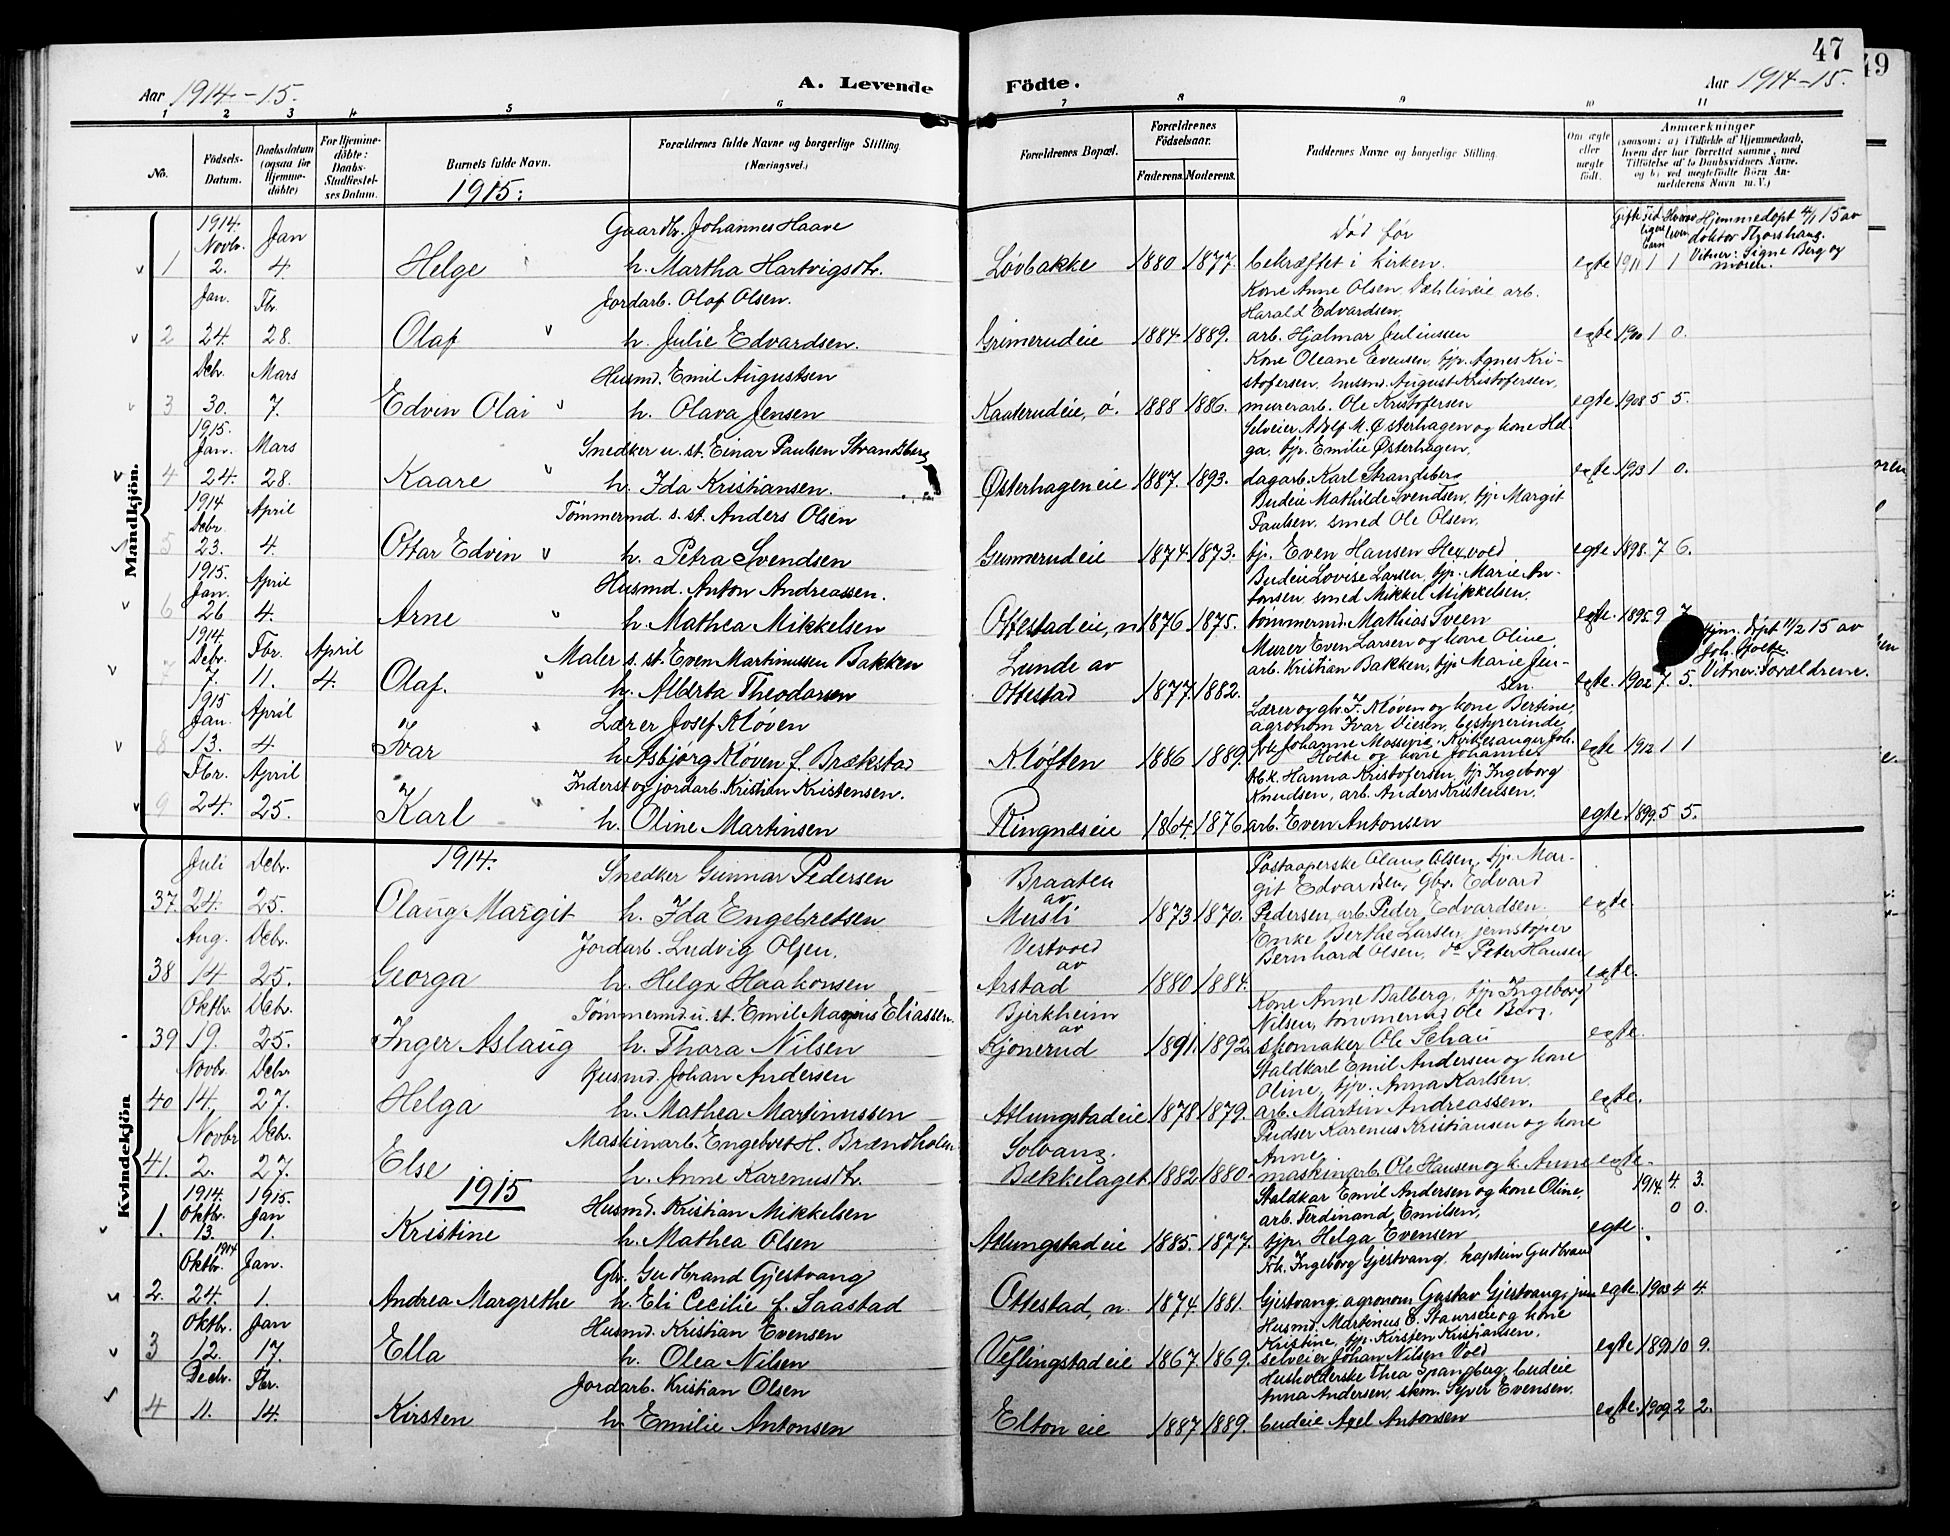 47
49
Aar 1914-15.
A. Levende Födte.
Aar 1914-15.
1 2 3 4 5 6 7 8 9 10 11
No.
Födsels-Datum.
Daabsdatum (ogsaa for Hjemme-döbte)
For Hjemme-döbte: Daabs-Stadfæstel-ses Datum.
Barnets fulde Navn.
Forældrenes fulde Navne og borgerlige Stilling. (Næringsvei.)
Forældrenes Bopæl.
Forældrenes Födselsaar.
Faderens. Moderens.
Faddernes Navne og borgerlig Stilling.
Om ægte eller uægte födt.
Anmærkninger (saasom: a) i Tilfælde af Hjemmedaab, hvem der har forrettet samme, med Tilföielse af to Daabsvidners Navne, og b) ved uægtefödte Börn An-melderens Navn m. V.)
1915:
Mandkjön.
1914. Novbr. Jan Gaardbr. Johannes Haave Död för Hjemmedöpt 4/1 15 av
1 2. 4. Helge h. Martha Hartvigsdtr. Løvbakke 1880 1877. bekræftet i kirken. egte 1911 1 1 Vitner: Signe Berg og
Jan. Fbr. Jordarb. Olaf Olsen. Kone Anne Olsen
Harald Edvardsen,
2 24. 28. Olaf h. Julie Edvardsen. Grimerudeie 1884. 1889. arb. Hjalmar Juliussen egte 1910 1 0.
Debr. Mars Husmd. Emil Augustsen Kone Oleane Evensen, tjp. Agnes Kri-
stofersen, husmd. August Kristofersen,
3 30. 7. Edvin Olai h. Olava Jensen Kaaterudeie, ö. 1888 1886. murerarb. Ole Kristofersen egte 1908 5 5.
1915. Jan. Mars Snedker u. st. Einar Paulsen Strandsberg Selveier Adolf M. Østerhagen og kone Hel-
ga, tjp. Emilie Østerhagen,
4 24. 28. Kaare h. Ida Kristiansen. Østerhageneie 1887. 1893. dagarb. Karl Strandsberg egte 1913 1 0.
1914 Debr. April Tømmermd. s. st. Anders Olsen Budeie Mathilde Svendsen, tjp. Margit
Paulsen, smed Ole Olsen,
5 23. 4. Ottar Edvin h. Petra Svendsen Gunnerudeie 1874. 1873. tj. Even Hansen Hexvold egte 1898. 7 6.
1915. Jan. April Husmd. Anton Andreassen. Budeie Lovise Larsen, tjp. Marie An-
tonsen, smed Mikkel Mikkelsen,
6 26 4. Arne h. Mathea Mikkelsen Ottestadeie, n 1876 1875. tømmermd. Mathias Sveen egte. 1895. 9 7
1914. Debr. Fbr. April Maler s. st. Even Martinussen Bakken Lunde av Murer Even Larsen og kone Oline Hjm. döpt 11/2 15 av
arb. Kristian Bakken, tjp. Marie Jen-
7 7. 11. 4. Olaf. h. Alberta Theodorsen Ottestad 1877. 1882. sen. egte. 1902 7. 5. Vitner: Foraldrene.
1915 Jan. April Lærer Josef Kløven Lærer og gbr. J. Kløven og kone Bertine,
agronom Ivar Viesen, bestyrerinde
8 13. 4 Ivar h. Asbjørg Kløven f. Brækstad Kløften 1886 1889. frk. Johanne Mossevie, Kirkesanger Joh. egte 1912 1 1
Holte og kone Johanne
Fbr. April Inderst og jordarb. Kristian Kristensen. Hanna Kristofersen, tjp. Ingeborg
Knudsen, arb. Anders Kristensen,
9 24. 25. Karl h. Oline Martinsen Ringnæseie 1864. 1876 arb. Even Antonsen egte. 1899. 5 5.
Kvindekjön
1914.
Juli Debr. Snedker Gunnar Pedersen Braaten av Olaug Olsen, tjp. Mar-
git Edvardsen, Gbr. Edvard
37. 24. 25. Olaug Margit h. Ida Engebretsen Musli 1873 1870. Pedersen, arb. Peder Edvardsen. egte.
Aug. Debr. Jordarb. Ludvig Olsen. Vestvold av Enke Berthe Larsen, jernstøper
Bernhard Olsen, do Peter Hansen
38 14 25. Georga h. Helga Haakonsen Arstad 1880 1884. egte.
Oktbr. Debr. Tømmermd. u. st. Emil Magnus Eliassen. Bjerkheim av Kone Anne Balberg, tjp. Ingeborg
Nilsen, tømmermd Ole Berg.
39 19. 25. Inger Aslaug h. Thora Nilsen Kjonerud 1891. 1892. skomaker Ole Schau egte.
Novbr. Debr. Husmd. Johan Andersen Staldkarl Emil Andersen og kone
Oline, tjp. Anna Karlsen.
40 14. 27. Helga h. Mathea Martinussen Atlungstadeie 1878 1879. arb. Martin Andreassen. egte.
Novbr Debr. Maskinarb. Engebret H. Brændholm Solvang. Pudser Karenus Kristiansen og kone
Anne,
41. 2. 27. Else h. Anne Karenusdtr. Bækkelaget 1882 1880. maskinarb. Ole Hansen og k. Anne egte
1915
1914. Oktbr. 1915. Jan Husmd. Kristian Mikkelsen Staldkar Emil Andersen og kone Oline, 1914. 4. 3.
arb. Ferdinand Emilsen, 0 0.
1. 13. 1. Kristine h. Mathea Olsen Atlungstadeie 1885. 1877. tjp. Helga Evensen egte.
Oktbr. 1914 Jan. Gbr. Gudbrand Gjestvang Frk. Ingeborg Gjestvang, kaptein Gudbrand
2. 24. 1. Andrea Margrethe h. Eli Cecilie f. Saastad Ottestad, n. 1874. 1881. Gjestvang, agronom Gustav Gjestvang, jun egte. 1903 4 4.
Oktbr. Jan Husmd. Kristian Evensen Husmd. Martinus E. Staurseie og kone
Kristine, tjp. Kirsten Kristiansen,
3 12. 17. Ella h. Olea Nilsen Veflingstadeie 1867. 1869. selveier Johan Nilsen Vold egte 1890 10 9.
Decbr. Fbr. Jordarb. Kristian Olsen Husholderske Thea Spangberg, budeie
Anna Andersen, skom. Syver Evensen.
4 11. 14. Kirsten h. Emilie Antonsen Elton eie 1887 1889. budeie Axel Antonsen egte. 1909. 2 2.